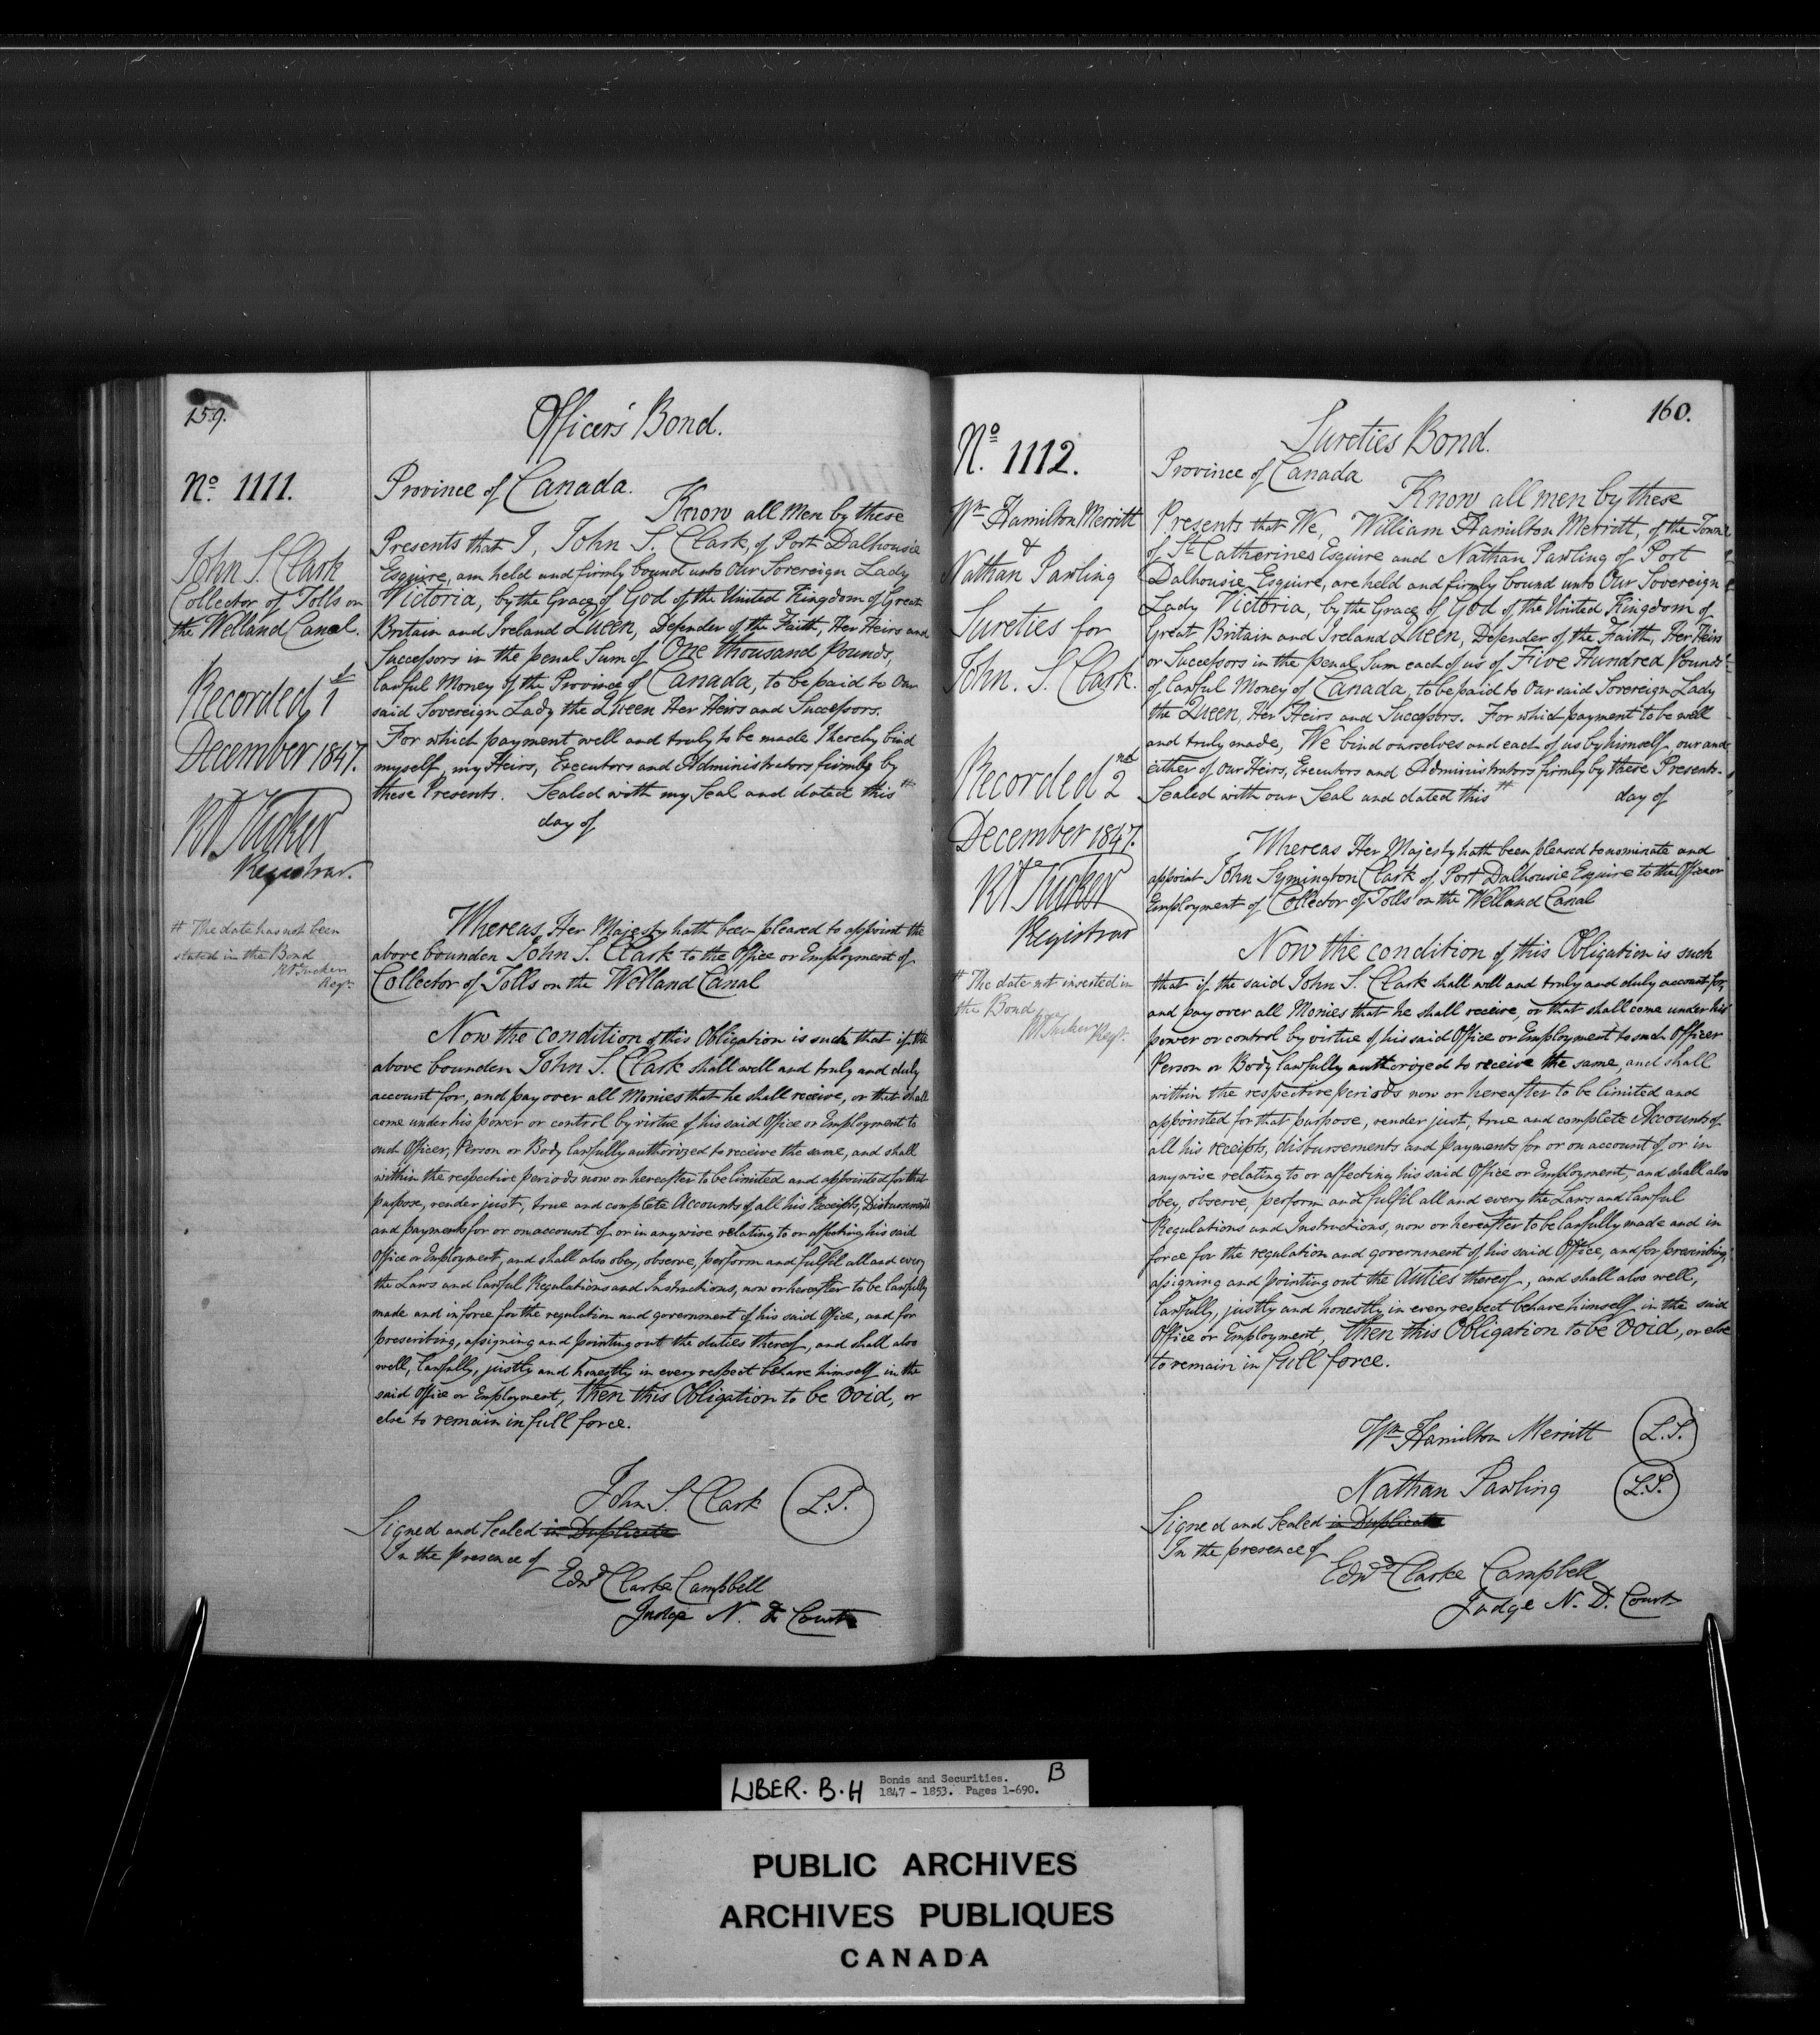 159.
Officers' Bond.
No. 1111.
John S. Clark
Collector of Tolls on
the Welland Canal.
Recorded 1st
December 1847.
RA Tucker
Registrar.
# The date has not been
stated in the Bond
RA Tucker
Regr.
Province of Canada.
Know all Men by these
Presents that I, John S. Clark, of Port Dalhousie
Esquire, am held and firmly bound unto Our Sovereign Lady
Victoria, by the Grace of God of the United Kingdom of Great
Britain and Ireland Queen, Defender of the Faith, Her Heirs and
Successors in the penal Sum of One thousand Pounds,
lawful Money of the Province of Canada, to be paid to Our
said Sovereign Lady the Queen Her Heirs and Successors.
For which payment well and truly to be made I hereby bind
myself, my Heirs, Executors and Administrators firmly by
these Presents. Sealed with my Seal and dated this #
day of
Whereas Her Majesty hath been pleased to appoint the
above bounden John S. Clark to the Office or Employment of
Collector of Tolls on the Welland Canal
Now the condition of this Obligation is such that if the
above bounden John S. Clark shall well and truly and duly
account for, and pay over all Monies that he shall receive, or that shall
come under his power or control by virtue of his said Office or Employment to
such Officer, Person or Body lawfully authorized to receive the same, and shall
within the respective periods now or hereafter to be limited and appointed for that
purpose, render just, true and complete Accounts of all his Receipts, Disbursements
and payments for or on account of or in anywise relating to or affecting his said
Office or Employment, and shall also obey, observe, perform and fulfil all and every
the Laws and lawful Regulations and Instructions, now or hereafter to be lawfully
made and in force for the regulation and government of his said Office, and for
prescribing, assigning and pointing out the duties thereof, and shall also
well, lawfully, justly and honestly in every respect behave himself in the
said Office or Employment, then this Obligation to be void, or
else to remain in full force.
John S. Clark L.S.
Signed and Sealed in Duplicate
In the presence of
Edwd Clarke Campbell
Judge N. D. Court
160.
Sureties Bond.
No. 1112.
Wm Hamilton Merritt
&
Nathan Pawling
Sureties for
John. S. Clark.
Recorded 2nd
December 1847.
RA Tucker
Registrar
# The date not inserted in
the Bond
RA Tucker Regr.
Province of Canada
Know all men by these
Presents that We, William Hamilton Merritt, of the Town
of St Catherines Esquire and Nathan Pawling of Port
Dalhousie Esquire, are held and firmly bound unto Our Sovereign
Lady Victoria, by the Grace of God of the United Kingdom of
Great Britain and Ireland Queen, Defender of the Faith, Her Heirs
or Successors in the penal Sum each of us of Five Hundred Pounds
of lawful Money of Canada, to be paid to Our said Sovereign Lady
the Queen, Her Heirs and Successors. For which payment to be well
and truly made, We bind ourselves and each of us by himself, our and
either of our Heirs, Executors and Administrators firmly by these Presents.
Sealed with our Seal and dated this # day of
Whereas Her Majesty hath been pleased to nominate and
appoint John Symington Clark of Port Dalhousie Esquire to the Office or
Employment of Collector of Tolls on the Welland Canal
Now the condition of this Obligation is such
that if the said John S. Clark shall well and truly and duly account for,
and pay over all Monies that he shall receive, or that shall come under his
power or control by virtue of his said Office or Employment to such Officer
Person or Body lawfully authorized to receive the same, and shall
within the respective periods now or hereafter to be limited and
appointed for that purpose, render just, true and complete Accounts of
all his receipts, disbursements and payments for or on account of or in
anywise relating to or affecting his said Office or Employment, and shall also
obey, observe, perform and fulfil all and every the Laws and lawful
Regulations and Instructions, now or hereafter to be lawfully made and in
force for the regulation and government of his said Office, and for prescribing,
assigning and pointing out the duties thereof, and shall also well,
lawfully, justly and honestly in every respect behave himself in the said
Office or Employment, then this Obligation to be void, or else
to remain in full force.
Wm Hamilton Merritt L.S.
Nathan Pawling L.S.
Signed and Sealed in Duplicate
In the presence of
Edwd Clarke Campbell
Judge N. D. Court
LIBER. B.H Bonds and Securities. B
1847 - 1853. Pages 1-690.
PUBLIC ARCHIVES
ARCHIVES PUBLIQUES
CANADA